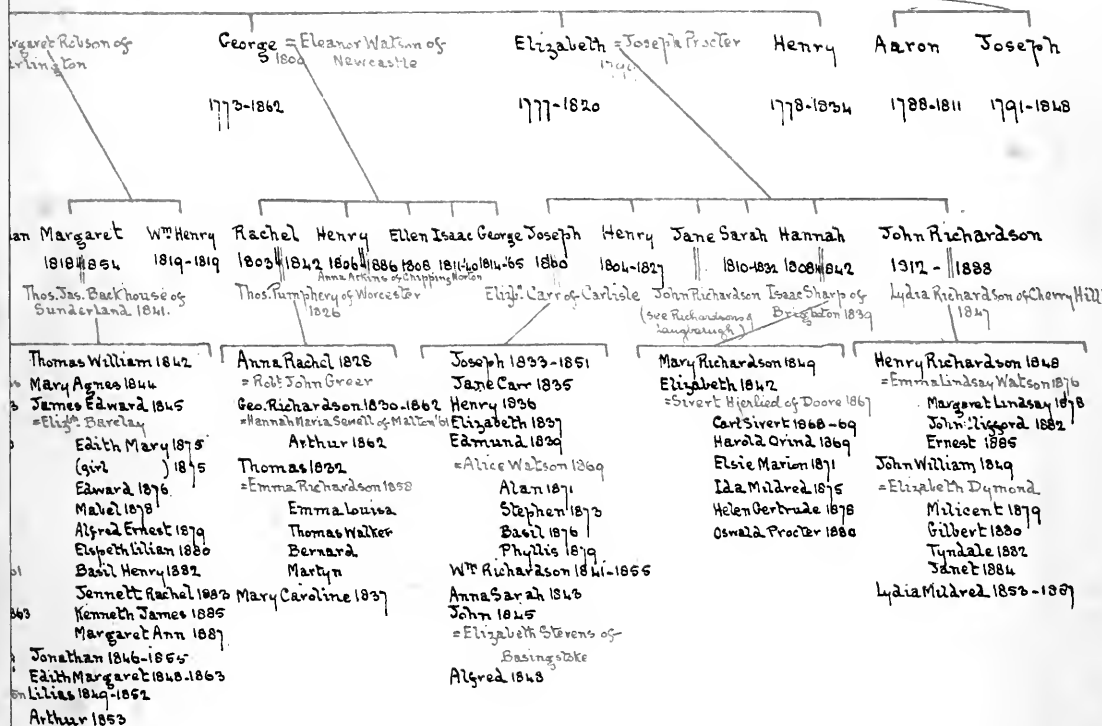 George = Eleanor Watson of
1800 Newcastle
1773-1862
Elizabeth = Joseph Procter
1777-1820
Henry
1778-1834
Aaron
1788-1811
Joseph
1791-1848
Margaret
1818 1854
Thos. Jas. Backhouse of
Sunderland 1841.
Wm Henry
1819-1819
Rachel
1803 1842
Thos. Pumphery of Worcester
1826
Henry
1806 1886
Anna Atkins of Chipping Norton
Ellen
1808
Isaac
1811-40
George
1814-'65
Joseph
1860
Elizth. Carr of Carlisle
Henry
1804-1827
Jane
John Richardson
(see Richardsons of
Langbaurgh)
Sarah
1810-1832
Hannah
1808 1842
Isaac Sharp of
Brighton 1839
John Richardson
1912 - 1888
Lydia Richardson of Cherry Hill
1847
Thomas William 1842
Mary Agnes 1844
James Edward 1845
=Elizth. Barclay
Edith Mary 1875
(girl ) 1875
Edward 1876
Mabel 1878
Alfred Ernest 1879
Elspeth Lilian 1880
Basil Henry 1882
Jennett Rachel 1883
Kenneth James 1885
Margaret Ann 1887
Jonathan 1846-1855
Edith Margaret 1848-1863
Lilias 1849-1852
Arthur 1853
Anna Rachel 1828
=Robt. John Greer
Geo. Richardson 1830-1862
=Hannah Maria Sewell of Malton '61
Arthur 1862
Thomas 1832
=Emma Richardson 1858
Emma Louisa
Thomas Walker
Bernard
Martyn
Mary Caroline 1837
Joseph 1833-1851
Jane Carr 1835
Henry 1836
Elizabeth 1837
Edmund 1839
=Alice Watson 1869
Alan 1871
Stephen 1873
Basil 1876
Phyllis 1879
Wm Richardson 1841-1855
Anna Sarah 1843
John 1845
=Elizabeth Stevens of
Basingstoke
Alfred 1848
Mary Richardson 1849
Elizabeth 1842
=Sivert Hjerlied of Doore 1867
Carl Sivert 1868-69
Harold Orind 1869
Elsie Marion 1871
Ida Mildred 1875
Helen Gertrude 1878
Oswald Procter 1880
Henry Richardson 1848
=Emma Lindsay Watson 1876
Margaret Lindsay 1878
John Clifford 1882
Ernest 1885
John William 1849
=Elizabeth Dymond
Milicent 1879
Gilbert 1880
Tyndale 1882
Janet 1884
Lydia Mildred 1853-1867